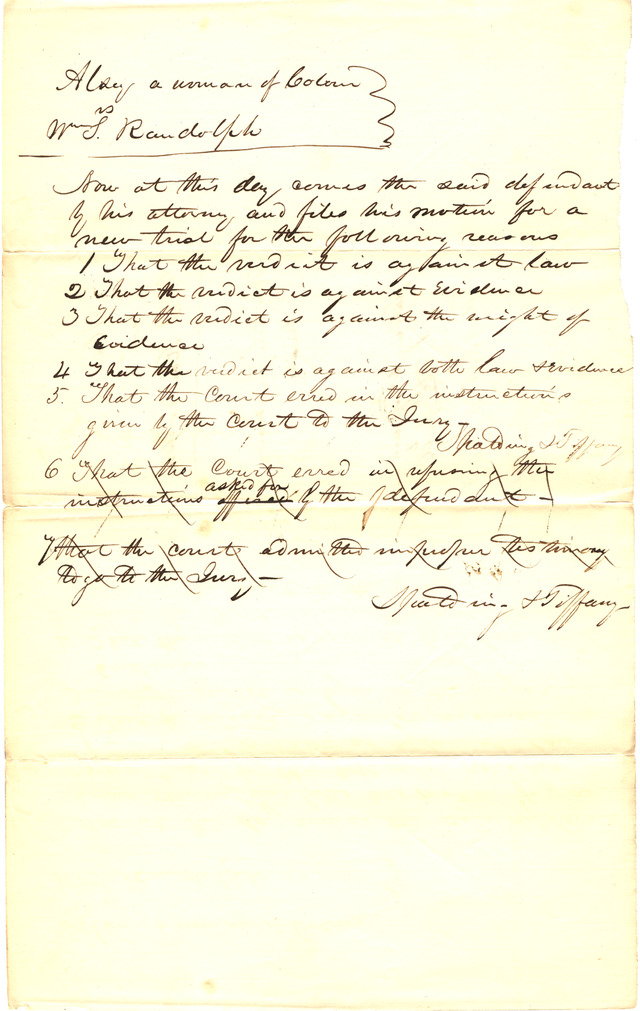 Alsey a woman of Colour
vs
Wm S. Randolph
Now at this day comes the said defendant
by his attorney and files his motion for a
new trial for the following reasons
1 That the verdict is against law
2 That the verdict is against Evidence
3 That the verdict is against the weight of
Evidence
4 That the verdict is against both law & Evidence
5. That the Court erred in the instructions
given by the court to the Jury -
Spalding & Tiffany
6 That the Court erred in refusing the
asked for
instructions offered by the defendant -
7 That the court admitted improper testimony
to go to the Jury -
Spalding & Tiffany